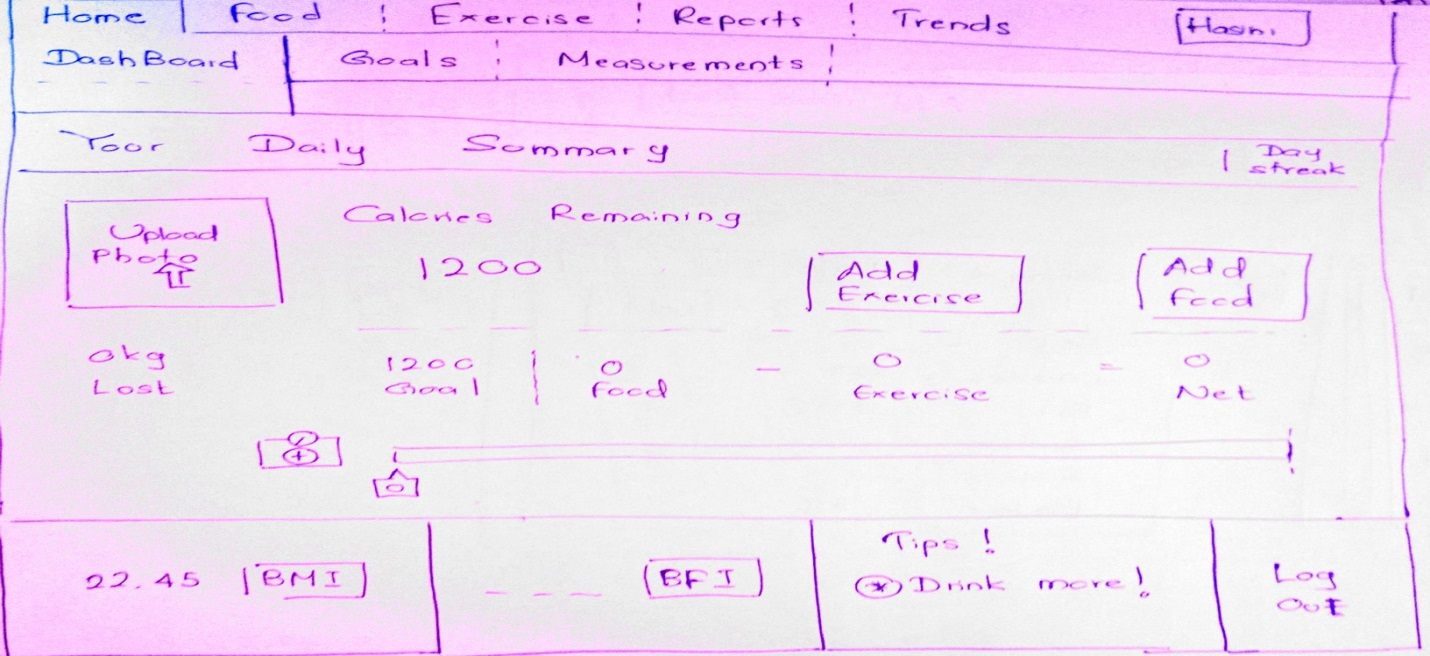 Home Food Exercise Reports Trends Hasini
DashBoard Goals Measurements
Your Daily Summary
1 Day
streak
Upload
Photo
Calories Remaining
1200
Add
Exercise
Add
Food
0kg
Lost
1200
Goal
0
Food
-
0
Exercise
=
0
Net
0
22.45 BMI
--- BFI
Tips!
Drink more!
Log
Out